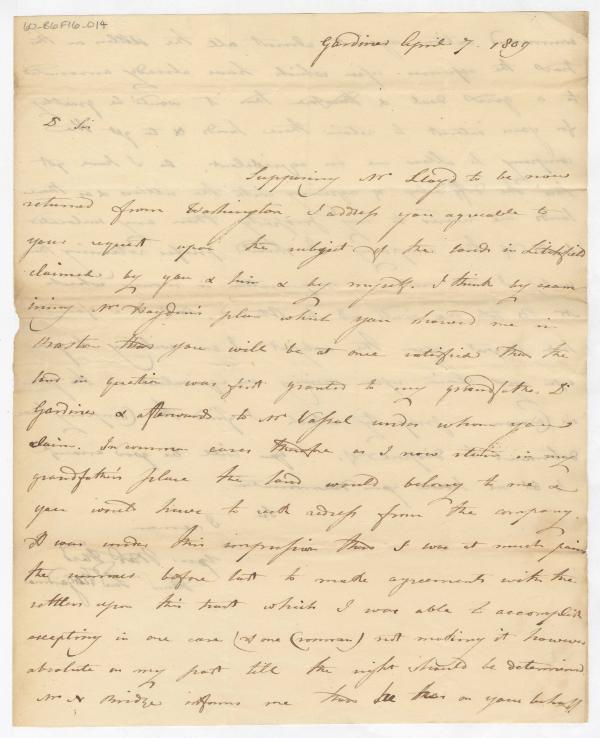 60-86F16-014
Gardiner April 7. 1809
Dr Sir
Supposing Mr Lloyd to be now
returned from Washington. I address you agreeable to
your request upon the subject of the lands in Litchfield
claimed by you & him & by myself. I think by exam
ining Mr Haydin's plan which you showed me in
Boston that you will be at once satisfied that the
land in question was first granted to my grandfather Dr
Gardiner & afterwards to Mr Vassal under whom you
claim. In common cases therefore as I now stand in my
grandfather's place the land would belong to me &
you would have to seek redress from the company.
It was under this impression that I was at much pains
the summer before last to make agreements with the
settlers upon this tract which I was able to accomplish
excepting in one case (& one woman) not making it however
absolute on my part till the right should be determined
Mr N Bridge informs me that he has on your behalf